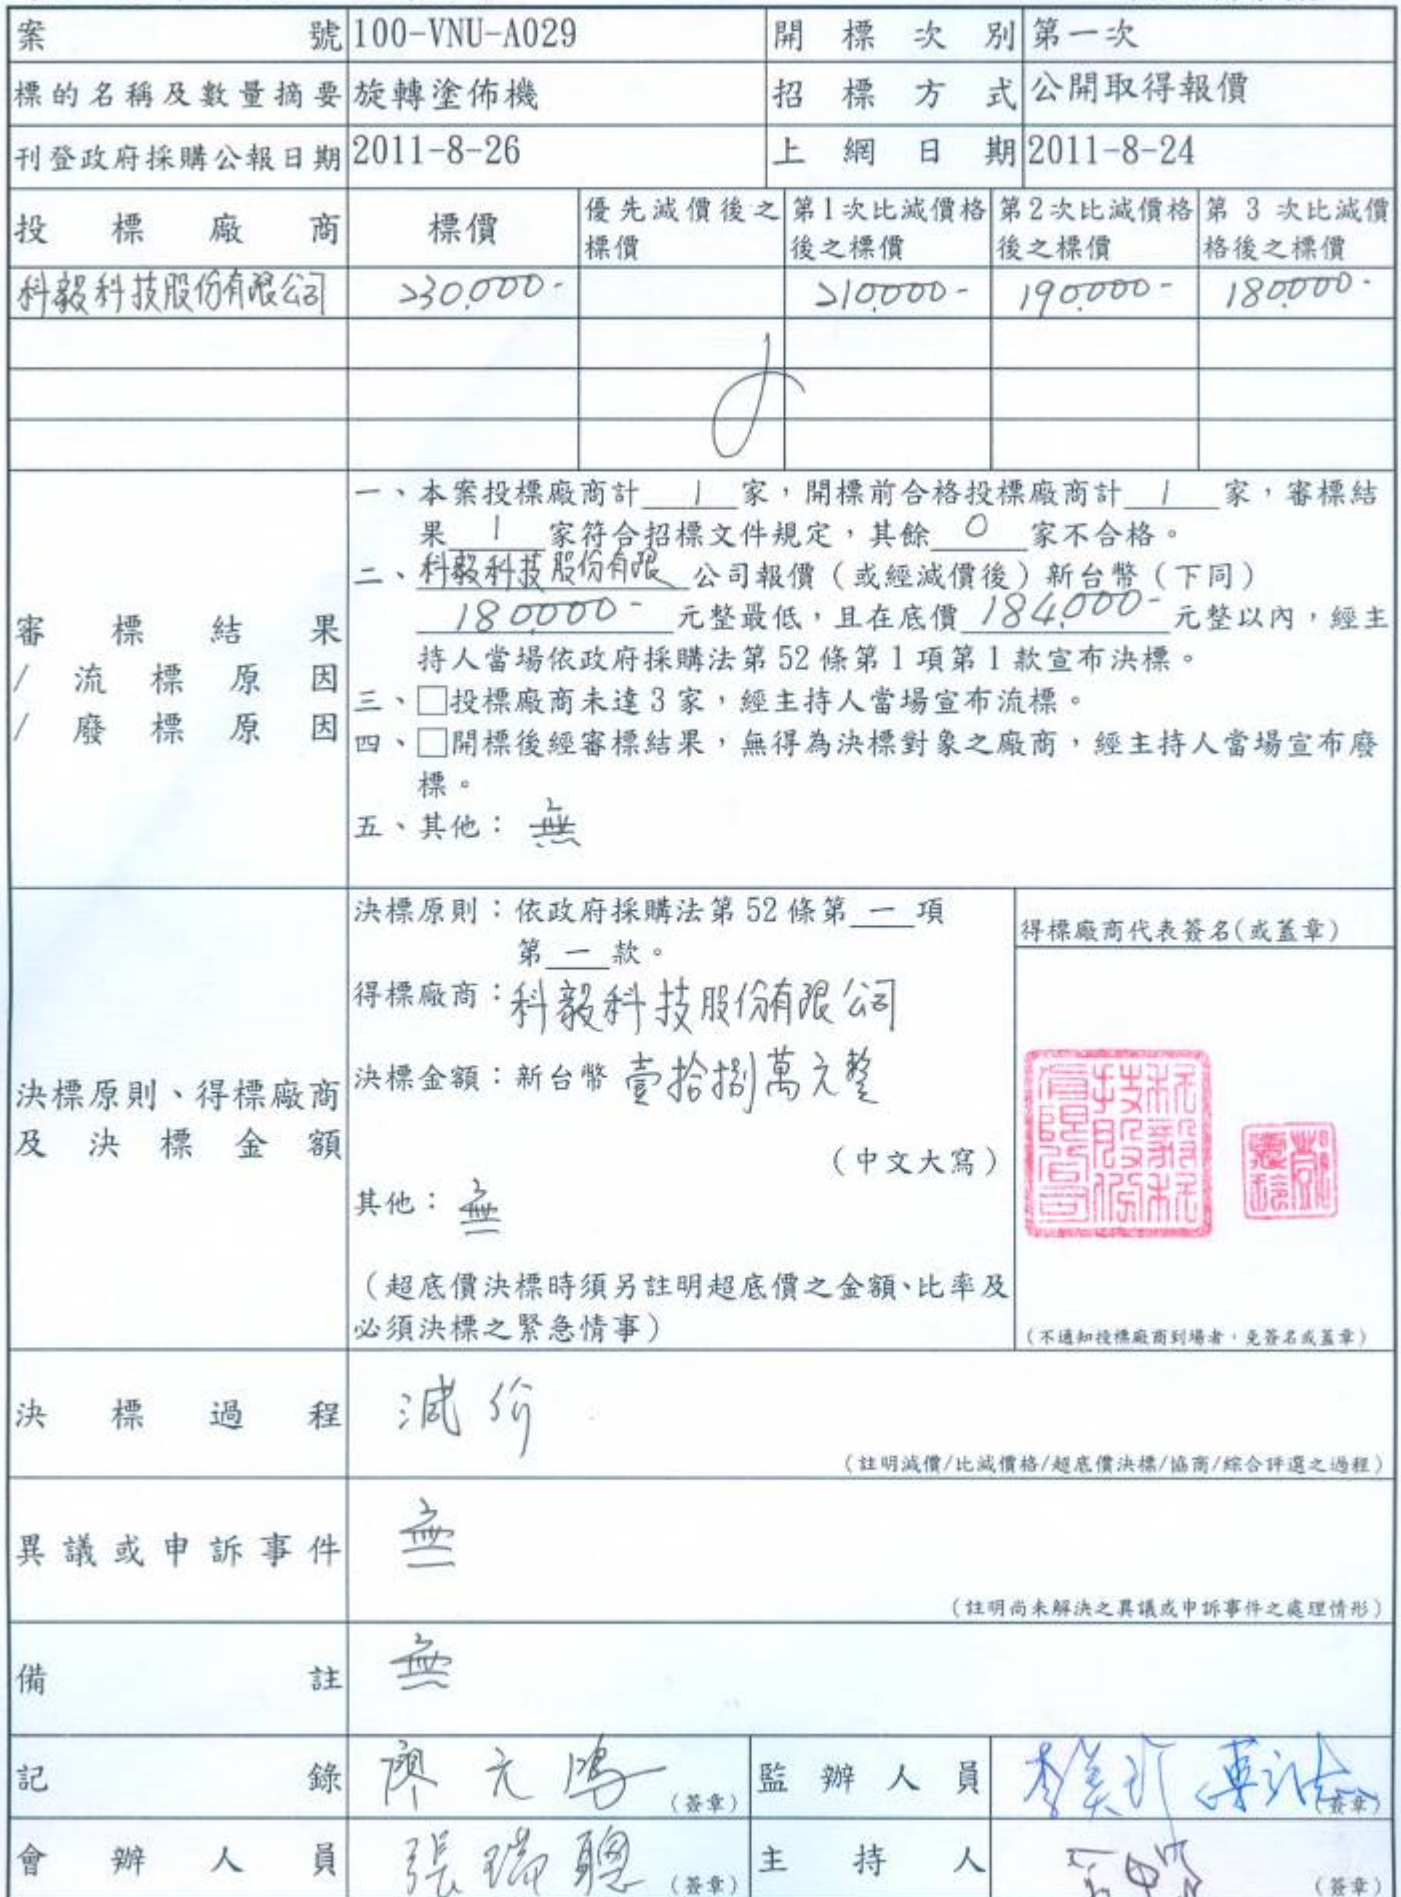 案號 100-VNU-A029 開標次別 第一次
標的名稱及數量摘要 旋轉塗佈機 招標方式 公開取得報價
刊登政府採購公報日期 2011-8-26 上網日期 2011-8-24
投標廠商 標價 優先減價後之標價 第1次比減價格後之標價 第2次比減價格後之標價 第3次比減價格後之標價
科毅科技股份有限公司 230,000- 210,000- 190,000- 180,000-
審標結果
/流標原因
/廢標原因
一、本案投標廠商計 1 家，開標前合格投標廠商計 1 家，審標結
果 1 家符合招標文件規定，其餘 0 家不合格。
二、科毅科技股份有限 公司報價（或經減價後）新台幣（下同）
180,000- 元整最低，且在底價 184,000- 元整以內，經主
持人當場依政府採購法第52條第1項第1款宣布決標。
三、□投標廠商未達3家，經主持人當場宣布流標。
四、□開標後經審標結果，無得為決標對象之廠商，經主持人當場宣布廢
標。
五、其他：無
決標原則、得標廠商
及決標金額
決標原則：依政府採購法第52條第 一 項
第 一 款。
得標廠商：科毅科技股份有限公司
決標金額：新台幣 壹拾捌萬元整
（中文大寫）
其他：無
（超底價決標時須另註明超底價之金額、比率及
必須決標之緊急情事）
得標廠商代表簽名(或蓋章)
科毅科
技股份
有限公司
（不通知投標廠商到場者，免簽名或蓋章）
決標過程 減價
（註明減價/比減價格/超底價決標/協商/綜合評選之過程）
異議或申訴事件 無
（註明尚未解決之異議或申訴事件之處理情形）
備註 無
記錄 廖元鴻 （簽章） 監辦人員 （簽章）
會辦人員 張瑞聰 （簽章） 主持人 （簽章）